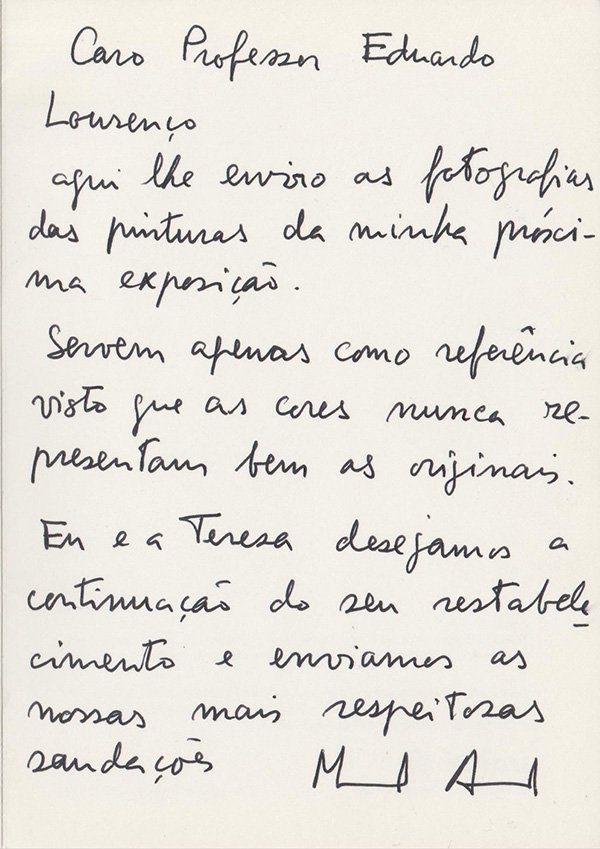 Caro Professor Eduardo
Lourenço
aqui lhe envio as fotografias
das pinturas da minha próxi-
ma exposição.
Servem apenas como referência
visto que as cores nunca re-
presentam bem as originais.
Eu e a Teresa desejamos a
continuação do seu restabele
cimento e enviamos as
nossas mais respeitosas
saudações